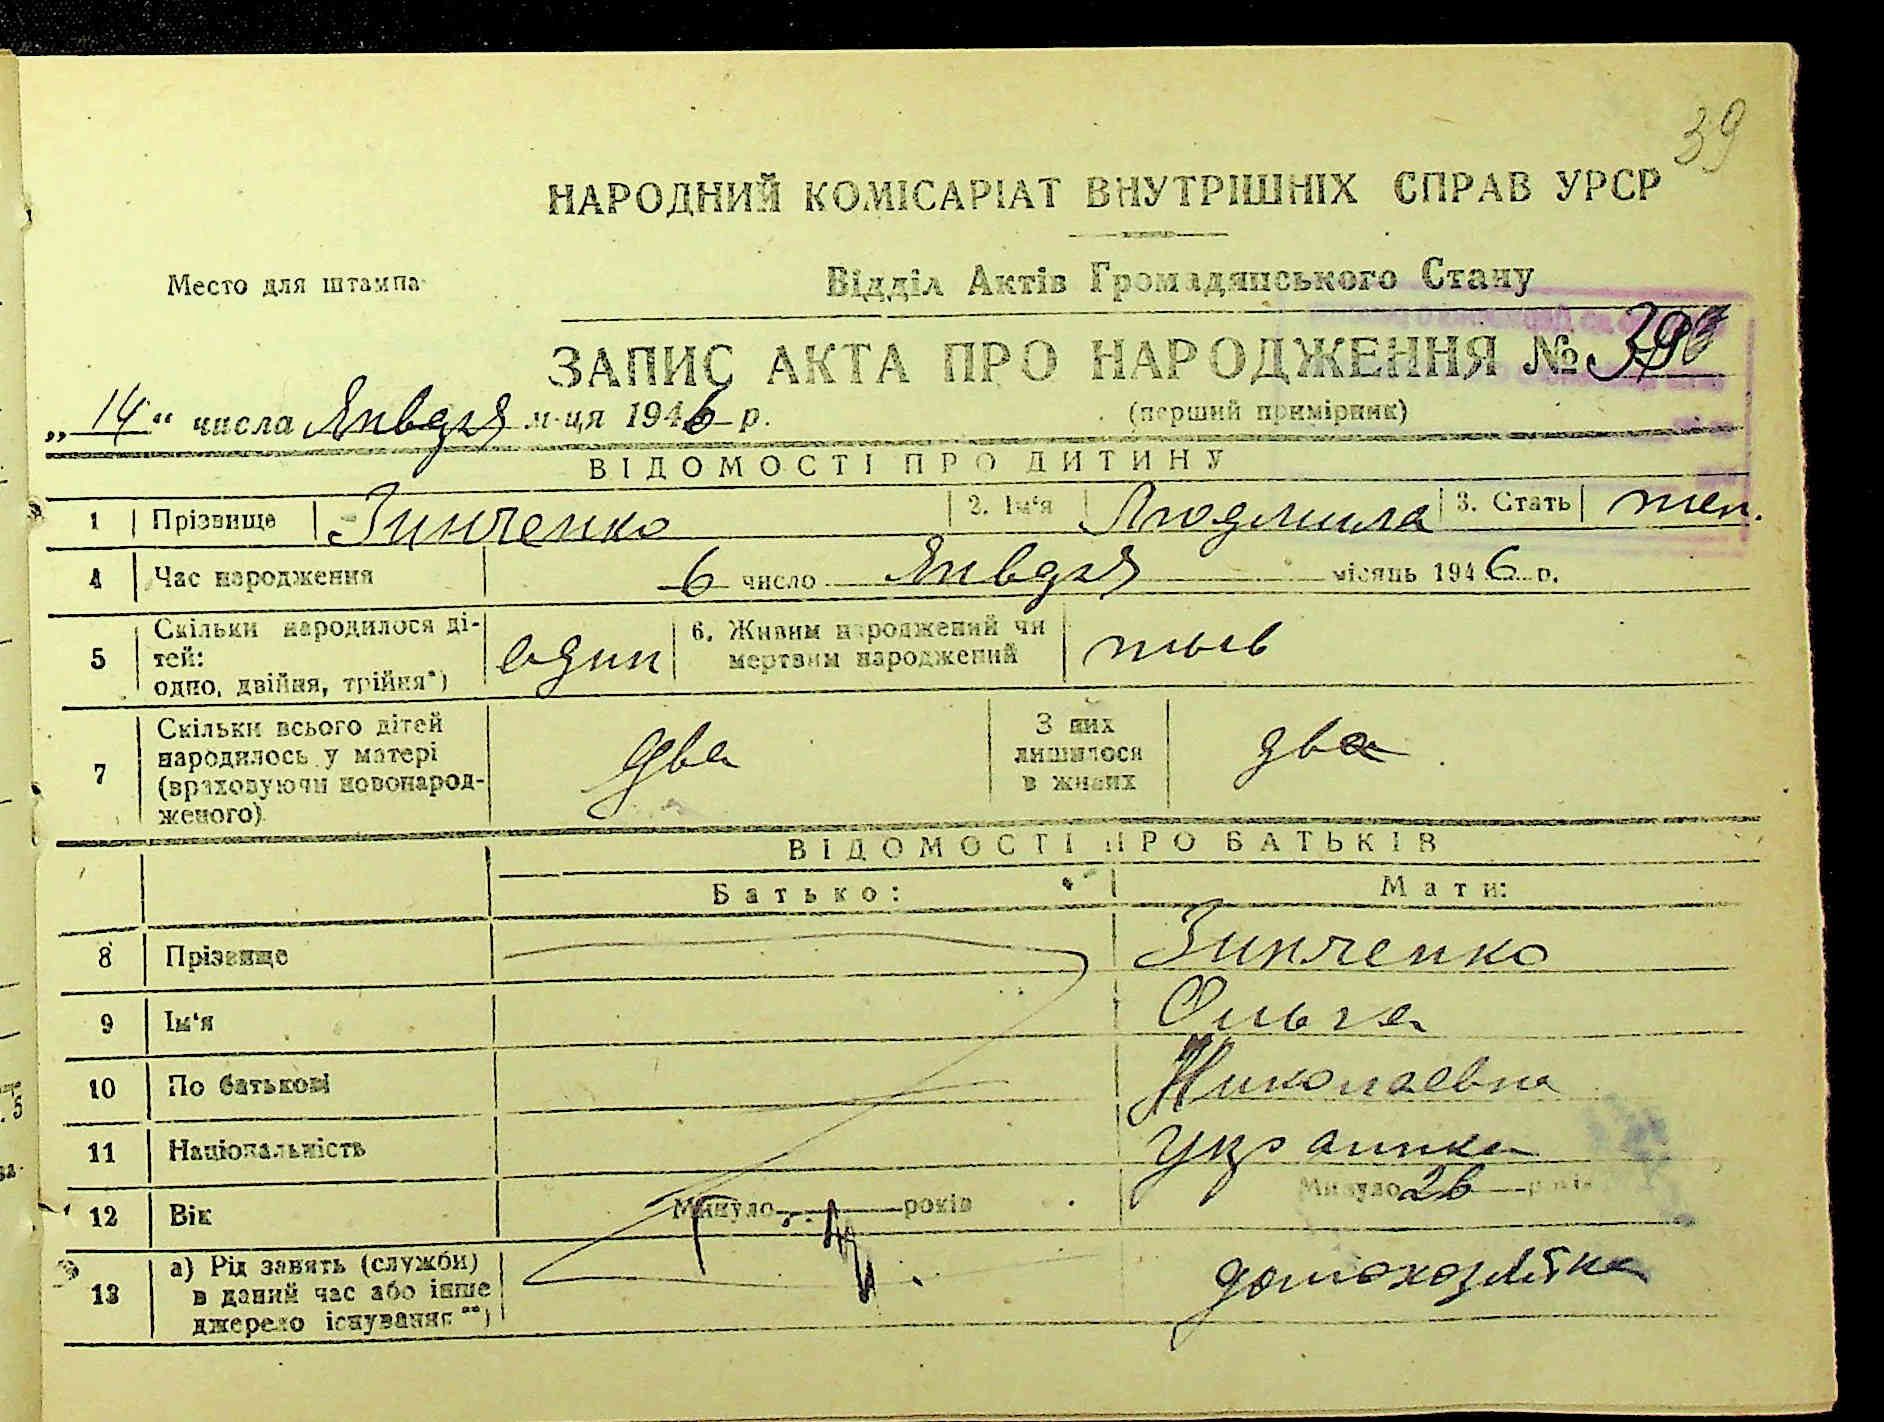 39
НАРОДНИЙ КОМІСАРІАТ ВНУТРІШНІХ СПРАВ УРСР
Место для штампа
Відділ Актів Громадянського Стану
ЗАПИС АКТА ПРО НАРОДЖЕННЯ №
„14“ числа Января м-ця 1946 р.
(перший примірник)
ВІДОМОСТІ ПРО ДИТИНУ
1 Прізвище Зинченко 2. Ім‘я Людмила 3. Стать жен.
4 Час народження 6 число Января місяць 1946 р.
5 Скільки народилося ді-
тей:
одно, двійня, трійня*) один
6. Живим народжений чи
мертвим народжений
7 Скільки всього дітей
народилось у матері
(враховуючи новонарод-
женого) два
З них
лишилося
в живих два
ВІДОМОСТІ ПРО БАТЬКІВ
Батько: Мати:
8 Прізвище Зинченко
9 Ім‘я Ольга
10 По батькові Николаевна
11 Національність украинка
12 Вік Минуло років Минуло 26 років
13 а) Рід занять (служби)
в даний час або інше
джерело існування**) домохозяйка